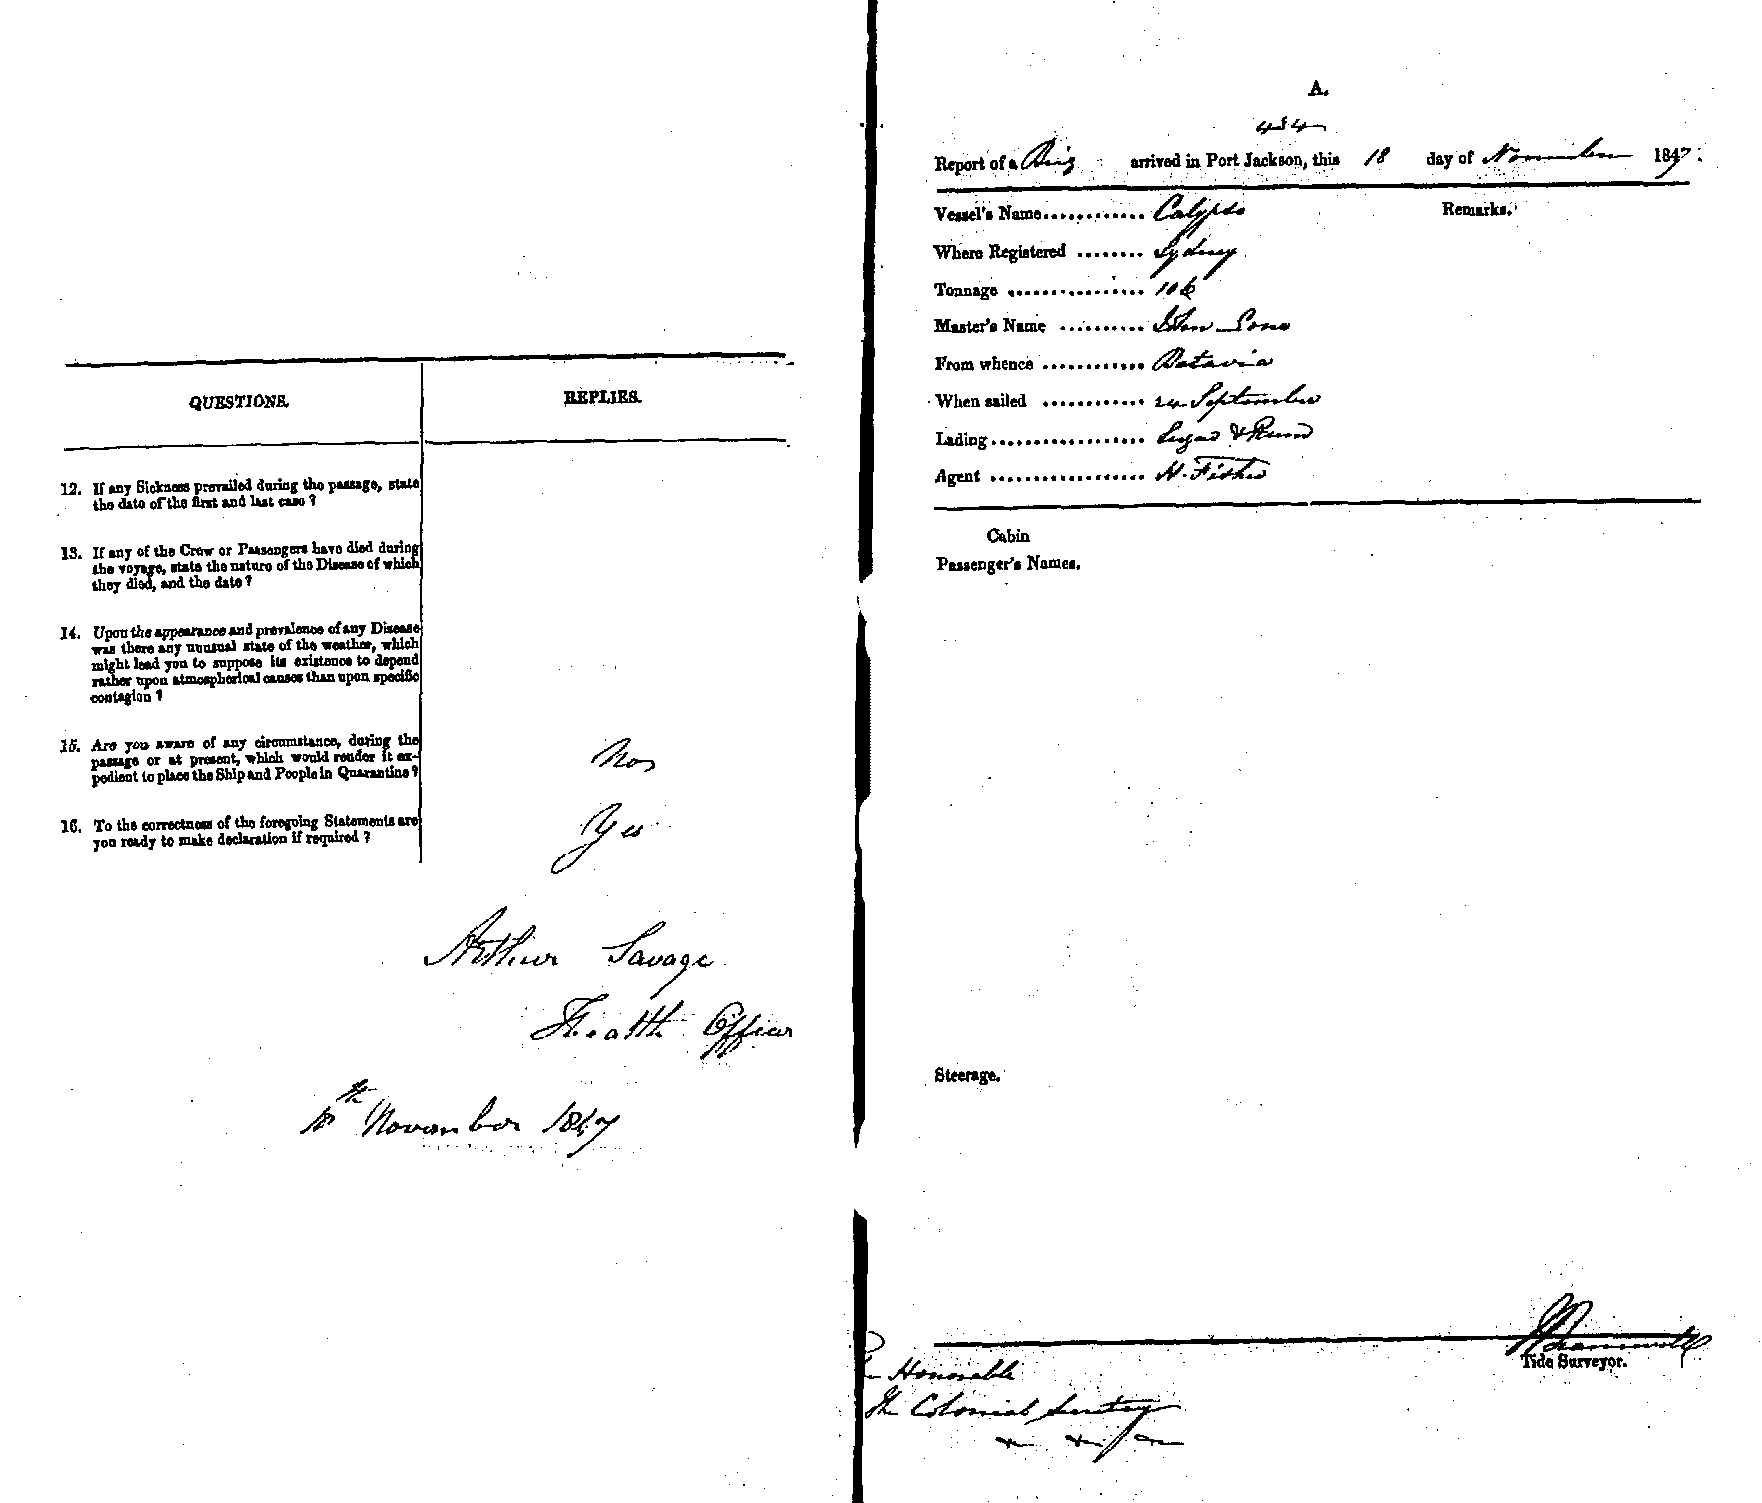 QUESTIONS.
REPLIES.
12. If any Sickness prevailed during the passage, state
the date of the first and last case ?
13. If any of the Crew or Passengers have died during
the voyage, state the nature of the Disease of which
they died, and the date ?
14. Upon the appearance and prevalence of any Disease
was there any unusual state of the weather, which
might lead you to suppose its existence to depend
rather upon atmospherical causes than upon specific
contagion ?
15. Are you aware of any circumstance, during the
passage or at present, which would render it ex-
pedient to place the Ship and People in Quarantine ?
No
16. To the correctness of the foregoing Statements are
you ready to make declaration if required ?
Yes
Arthur Savage
Health Officer
18th November 1847
A.
Report of a Brig arrived in Port Jackson, this 18 day of November 1847.
Vessel's Name............ Calypso
Remarks.
Where Registered ........ Sydney
Tonnage ................ 106
Master's Name .......... John
From whence ............ Batavia
When sailed ............ 24 September
Lading.................. Sugar & Rum
Agent .................. H. Fisher
Cabin
Passenger's Names.
Steerage.
Tide Surveyor.
Honorable
The Colonial Secretary